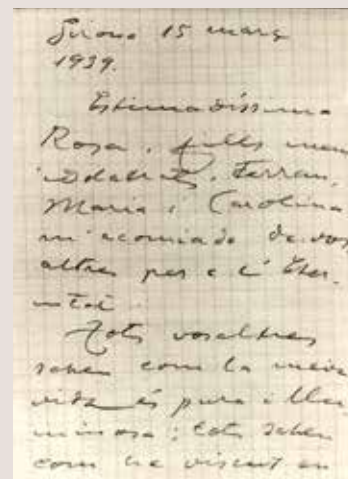 Girona 15 març
1939.
Estimadíssima
Rosa, fills meus
idolatrats, Ferran,
Maria i Carolina
m'acomiado de vos
altres per a l'Eter-
nitat.
Tots vosaltres
sabeu com la meva
vida és pura i llu
minosa; tots sabeu
com he viscut en